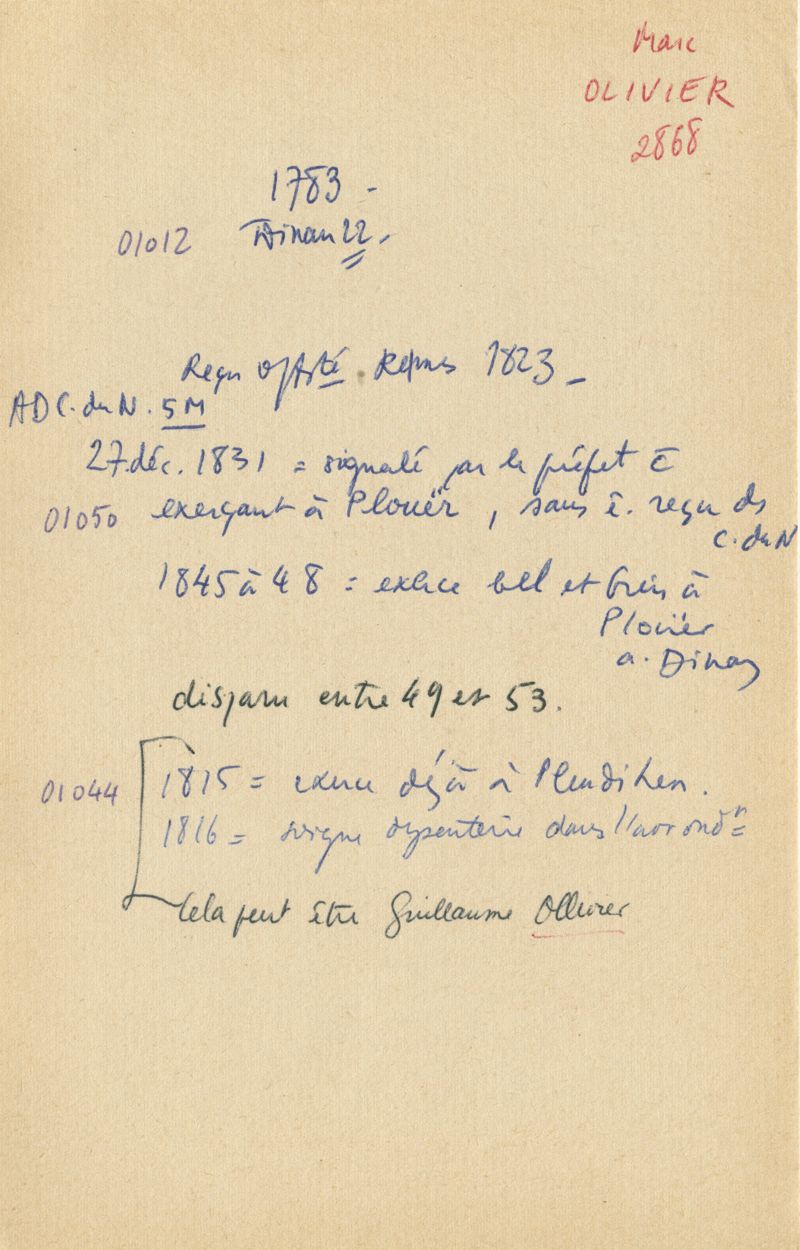 Marc
OLIVIER
2868
1783 -
01012 Dinan 22.
Reçu off. sté Rennes 1823 -
AD C. du N. 5M
27 déc. 1831 = signalé par le préfet c̄
01050 exerçant à Plouër, sans ê. reçu ds
C. du N
1845 à 48 = exerce bel et bien à
Plouër
a. Dinan
disparu entre 49 et 53.
01044 1815 = exerce déjà à Pleudihen.
1816 = soigne dysenterie dans l'arrondⁿ =
Cela peut être Guillaume Ollivier